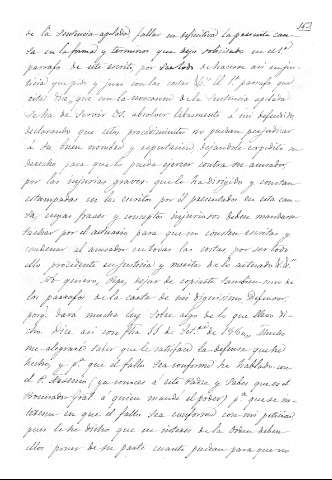 de la sentencia apelada fallar en definitiva la presente cau-
sa en la forma y terminos que dejo solicitado en el 1º
parrafo de este escrito, por ser todo de hacerse asi en jus-
ticia que pido y juro con las costas &ª. El 1º parrafo que
este dia, que con la revocacion de la sentencia apelada
se ha de servir absolver libremente a mi defendido,
declarando que estos procedimientos no puedan perjudicar
a su buen nombre y reputacion dejandole espedito su
derecho para que lo pueda ejercer contra su acusador,
por las injurias graves que le ha dirigido y constan
estampadas en los escritos por el presentados en esta cau-
sa, cuyas frases y conceptos injuriosos deben mandarse
tachar por el actuario para que no consten escritas y
condenar al acusador en todas las costas por ser todo
ello procedente en justicia y merito de lo actuado &ª.
No quiero, hijo, dejar de copiarte tambien uno de
los parrafos de la carta de mi dignisimo Defensor,
porq. dara mucha luz sobre algo de lo que llevo di-
cho. Dice asi con fha. 11 de Set.e de 1860,, Mucho
me alegraré saber que le satisface la defensa que he
hecho, y pª que el fallo sea conforme he hablado con
el P. (ya conoces á este Padre y sabes que es el
Procurador Gral á quien mandé el poder) pª que se in-
terese en que el fallo sea conforme con mi peticion
pues le he dicho que en interes de la Orden deben
ellos poner de su parte cuanto puedan para que no